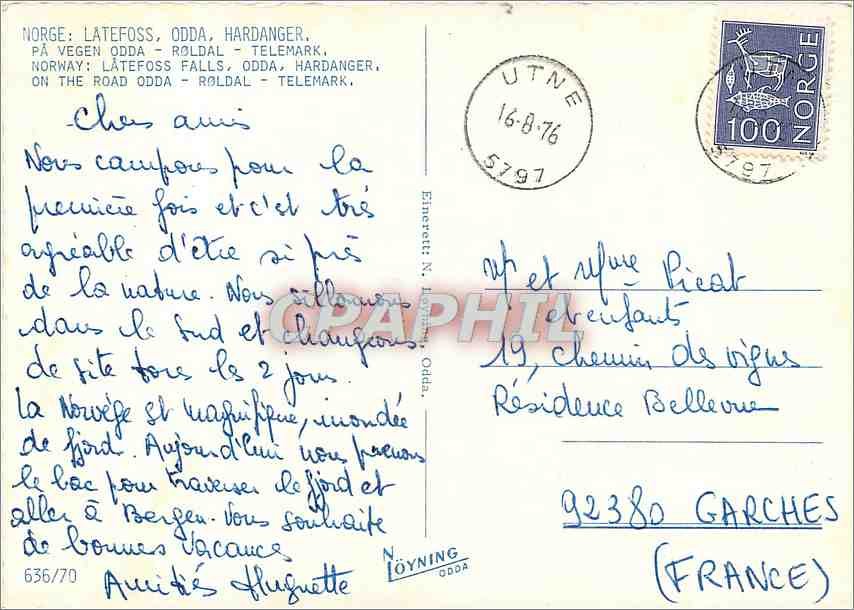 NORGE: LÅTEFOSS, ODDA, HARDANGER.
PÅ VEGEN ODDA - RØLDAL - TELEMARK.
NORWAY: LÅTEFOSS FALLS, ODDA, HARDANGER.
ON THE ROAD ODDA - RØLDAL - TELEMARK.
Chers amis
Nous campons pour la
première fois et c'est très
agréable d'être si près
de la nature. Nous sillonnons
dans le sud et changeons
de site tous les 2 jours.
La Norvège est magnifique, inondée
de fjord. Aujourd'hui nous prenons
le bac pour traverser le fjord et
aller à Bergen. Vous souhaite
de bonnes vacances
Amitiés Huguette
636/70
Enerett: N. Løyning, Odda.
N. LÖYNING
ODDA
CPAPHIL
UTNE
16-8-76
5797
NORGE
100
5797
Mr et Mme Picat
et enfants
19, chemin des vignes
Résidence Bellevue
92380 GARCHES
(FRANCE)